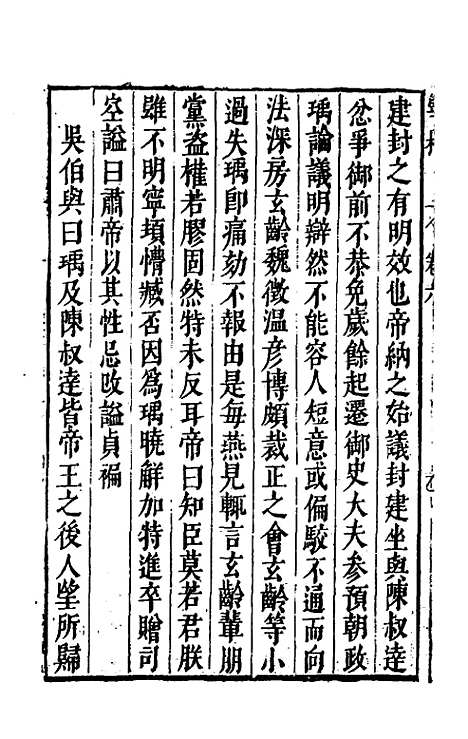 建封之有明效也帝納之始議封建坐與陳叔達
忿爭御前不恭免歲餘起遷御史大夫參預朝政
瑀論議明辯然不能容人短意或偏駮不通而向
法深房玄齡魏徵溫彥博頗裁正之會玄齡等小
過失瑀即痛劾不報由是每燕見輒言玄齡輩朋
黨盗權若膠固然特未反耳帝曰知臣莫若君朕
雖不明寧頊懵臧否因爲瑀曉解加特進卒贈司
空謚曰肅帝以其性忌改謚貞褊
吳伯與曰瑀及陳叔達皆帝王之後人望所歸